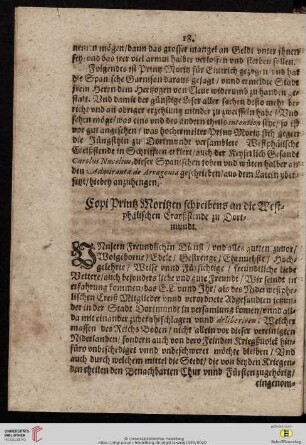 18.
nemen mögen/dann das grosser mangel an Geldt unter jhnen
sey/und das seer viel armut halber verloffen und sterben sollen.
Folgendes ist Printz Moritz für Emrich gezogen und hat
die Spanische Garnison daraus gejagt/ und ermeldte Stadt
jrem Herrn dem Hertzogen von Cleve widerumb zu handen ge-
stalt. Und damit der günstige leser aller sachen desto mehr be-
richt und an obriger erzehlung minder zu zweiffeln hab/ Und
sehen möge/was eins und des andern theils intention seie, so ist
vor gut angesehen/ was hochermelter Printz Moritz sich gegen
die Jüngsthin zu Dortmundt versamblete Westphälische
Creißstende in Schrifften erklert/auch der Keyserlich Gesandt
Carolus Nucelius, dieser Spanischen toben und wüten halber an
den Admiranta de Arragona geschrieben/aus dem Latein vber-
setzt/hiebey anzuhengen,
Copi Printz Moritzen schreibens an die West-
phälischen Crayßstende zu Dort-
mundt.
UNsern Freundtlichen Dienst/ und alles gutten zuvor/
Wolgeborne/ Edele/ Gestrenge/ Ehrnveste/ Hoch-
gelehrte/ Weise unnd Fürsichtige/ freundtliche liebe
Vettere/ auch besonders liebe und gute Freunde/ Wir seindt in
erfahrung kommen das E.L. unnd Jhr/ als des Niderwestphä-
lischen Creiß Mitglieder unnd verordnete Abgesandten jetzun-
der in der Stadt Dortmundt in versamlung komen/unnd alda
mit einander zuberahtschlagen vnnd deliberiren: Welcher
massen des Reichs Boden/ nicht allein vor dieser vereinigten
Niderlanden/ sondern auch von dero Feinden Kriegßvolck hin-
füro unbeschediget vnnd unbeschweret möchte bleiben/ Und
auch durch welchem mittel die Stedt/ die von beyden Kriegen-
den theilen den Benachbarten Chur unnd Fürsten zugehörig
eingenom-
UNIVERSITÄTS-
BIBLIOTHEK
HEIDELBERG
© Universitätsbibliothek Heidelberg